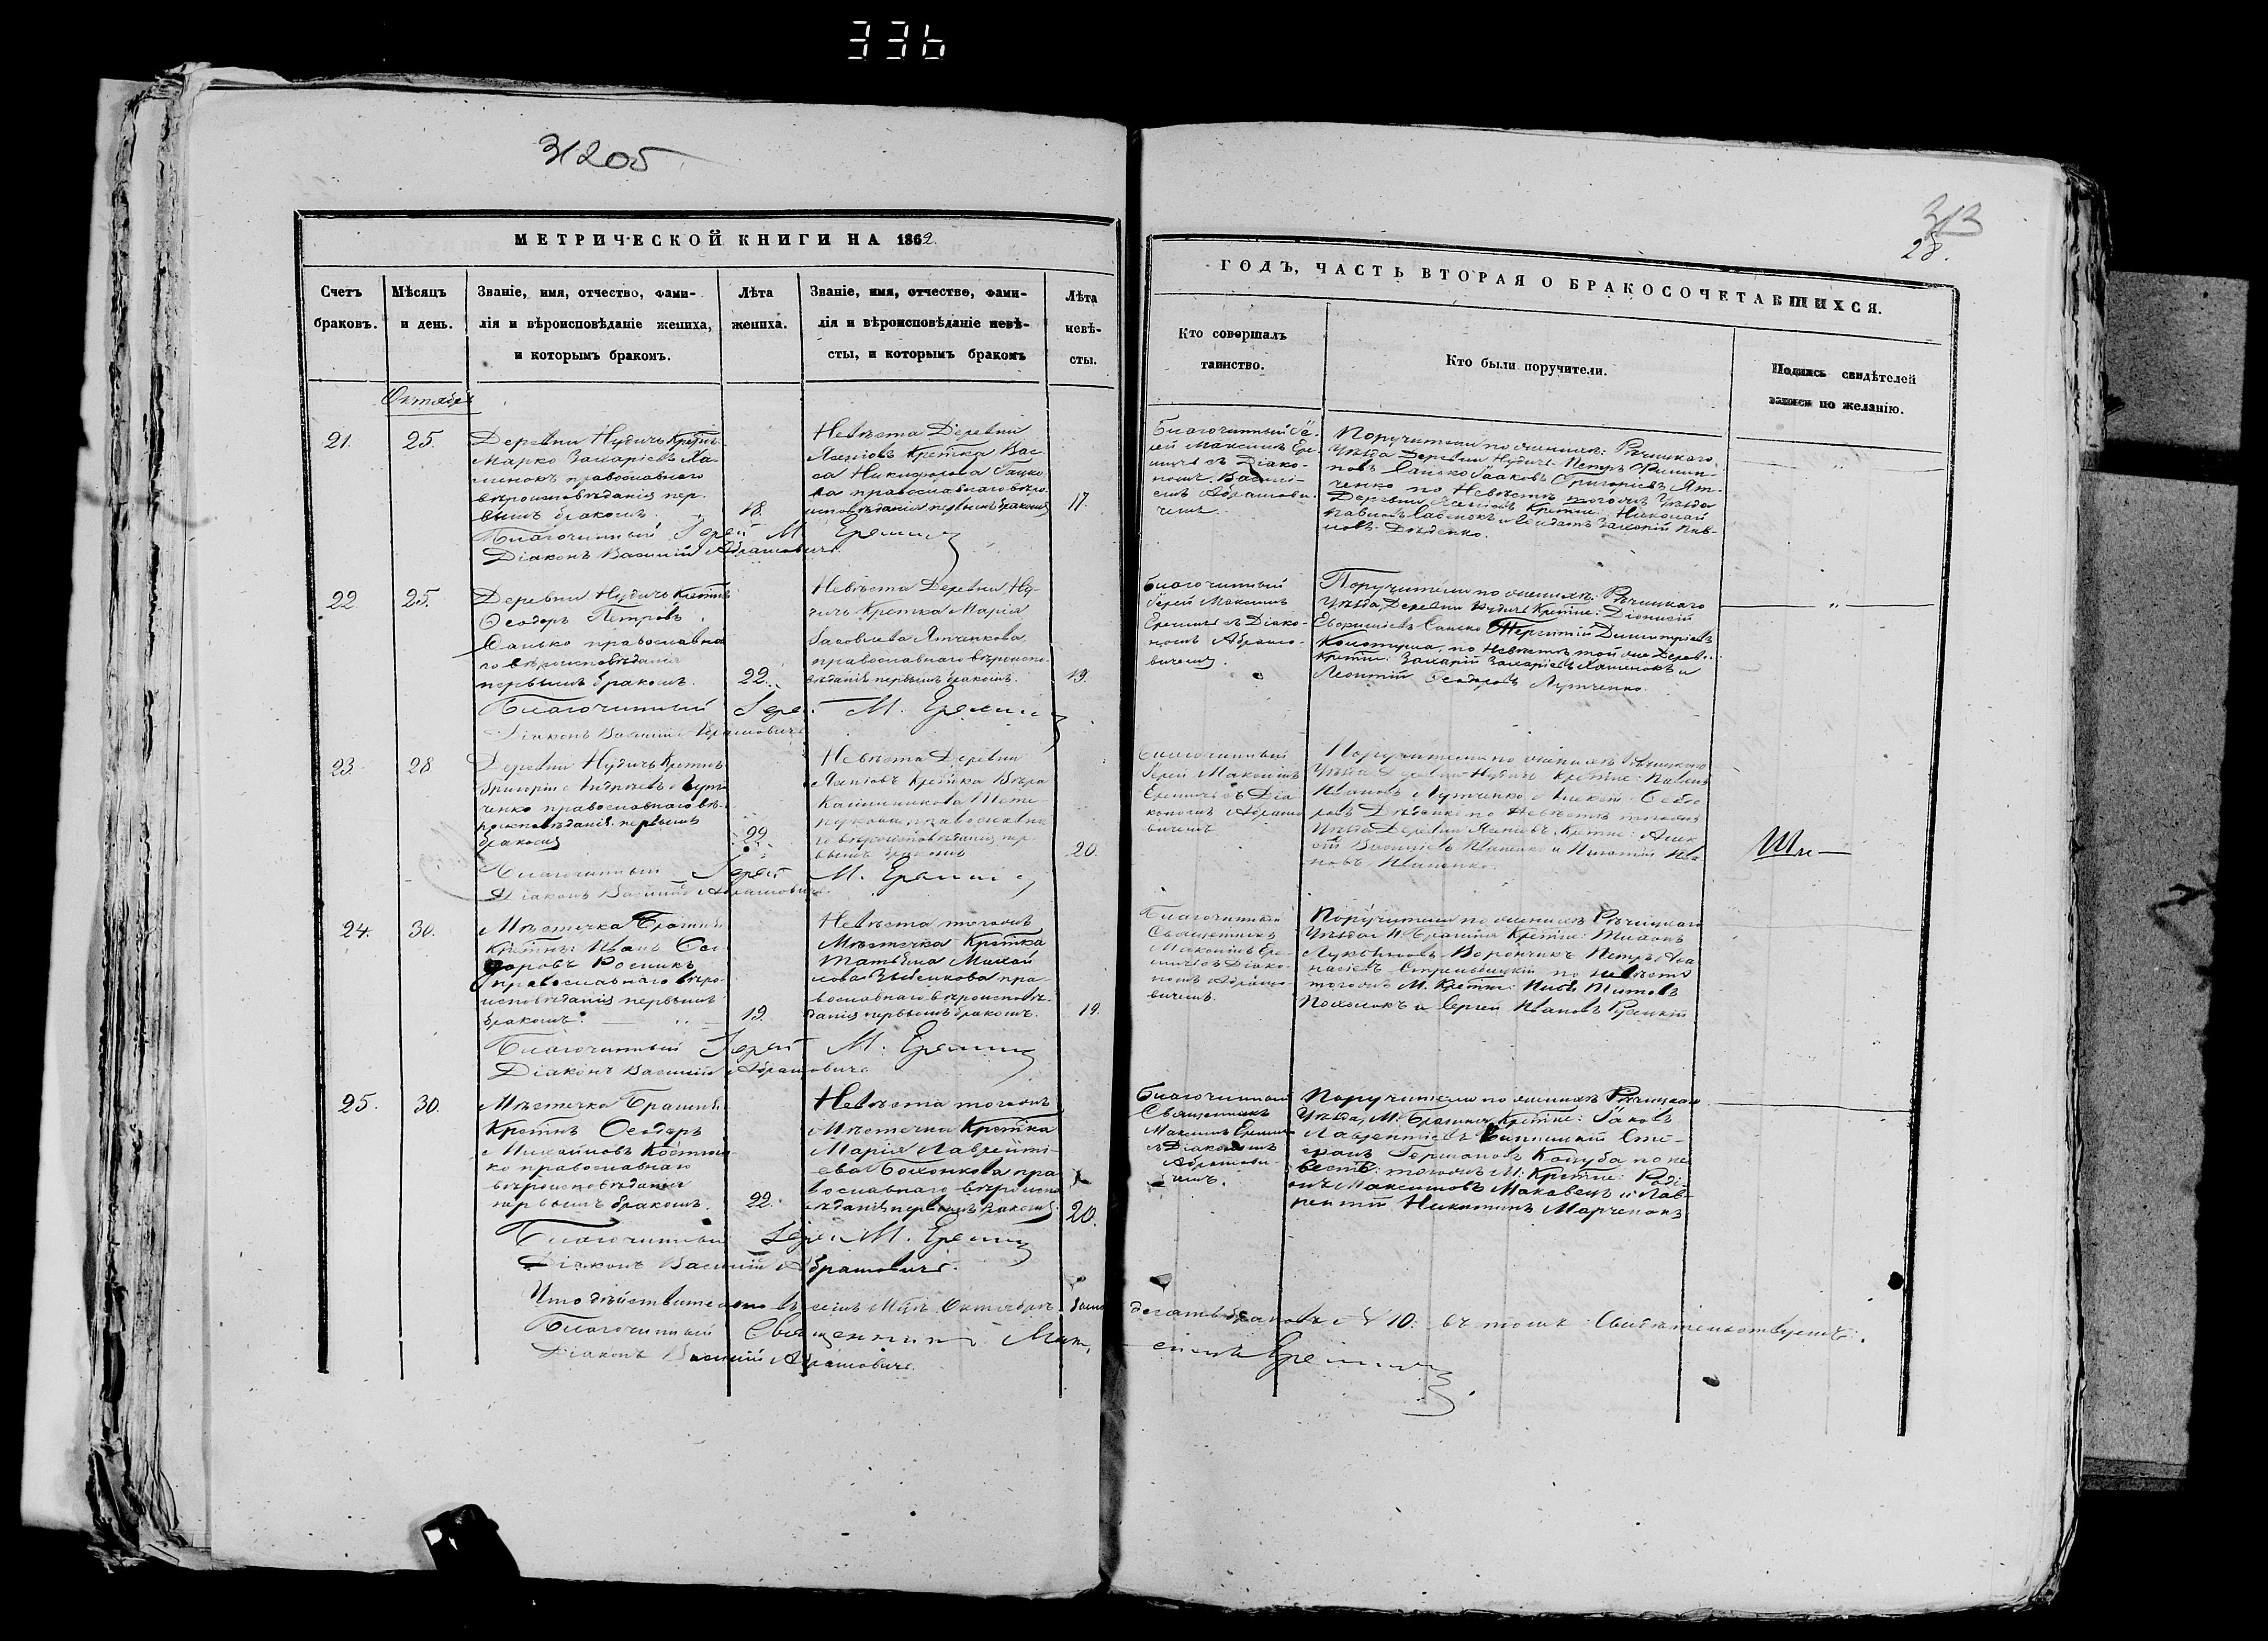 336
31205
313
28.
МЕТРИЧЕСКОЙ КНИГИ НА 1862
ГОДЪ, ЧАСТЬ ВТОРАЯ О БРАКОСОЧЕТАВШИХСЯ.
Счетъ браковъ.
Мѣсяцъ и день.
Званіе, имя, отчество, фами-
лія и вѣроисповѣданіе жениха,
и которымъ бракомъ.
Лѣта жениха.
Званіе, имя, отчество, фами-
лія и вѣроисповѣданіе невѣ-
сты, и которымъ бракомъ
Лѣта невѣ-
сты.
Кто совершалъ
таинство.
Кто были поручители.
Подпись свидѣтелей
записи по желанію.
Октябрь
21.
25.
Деревни Нудичъ Крстнъ
Марко Захаріевъ Ха-
менокъ православнаго
вѣроисповѣданія пер-
вымъ бракомъ.
18.
Невѣста Деревни
Крстка Вас-
са Никифорова
православнаго вѣро-
исповѣданія первымъ бракомъ
17.
Благочинный Іе-
рей Максимъ Ере-
мичъ съ Діако-
номъ Василі-
емъ Абрамови-
чемъ.
Поручители по женихѣ: Рѣчицкаго
Уѣзда Деревни Нудичъ Петръ
Санько Іаковъ Григоріевъ Ят-
ченко по Невѣстѣ тогожъ Уѣзда
Деревни Крстне: Николай
Павловъ и Солдатъ Захарій Пав-
ловъ Дѣденко.
Благочинный Іерей М. Еремичъ
Діаконъ Василій Абрамовичъ.
22
25.
Деревни Нудичъ Крстнъ
Ѳеодоръ Петровъ
Санько православна-
го вѣроисповѣданія
первымъ бракомъ.
22.
Невѣста Деревни Ну-
дичъ Крстка Марія
Іаковлева Ятченкова
православнаго вѣроиспо-
вѣданія первымъ бракомъ.
19.
Благочинный
Іерей Максимъ
Еремичъ съ Діако-
номъ Абрамо-
вичемъ.
Поручители по женихѣ: Рѣчицкаго
Уѣзда, Деревни Нудичъ Крстне: Діонисій
Санько Терентій Димитріевъ
по Невѣстѣ той же Дерев.
Крстне: Захарій Захаріевъ Хаменокъ и
Леонтій Ѳеодоровъ Лутченко.
Благочинный Іерей М. Еремичъ
Діаконъ Василій Абрамовичъ
23.
28
Деревни Нудичъ Крстнъ
Григорій Андреевъ Лут-
ченко православнаго вѣ-
роисповѣданія первымъ
бракомъ
22.
Невѣста Деревни
Крстка Вѣра
Калиникова
православна-
го вѣроисповѣданія пер-
вымъ бракомъ
20.
Благочинный
Іерей Максимъ
Еремичъ съ Діа-
кономъ Абрамо-
вичемъ
Поручители по женихѣ Рѣчицкаго
Уѣзда Деревни Нудичъ Крстне: Павелъ
Ивановъ Лутченко, Алексѣй
Дѣденко по Невѣстѣ тогожъ
Уѣзда Деревни Крстне: Алек-
сѣй Васильевъ Иваненко и Игнатій Ива-
новъ Иваненко.
Благочинный Іерей М. Еремичъ
Діаконъ Василій Абрамовичъ.
24.
30.
Мѣстечка Брагина
Крстнъ: Иванъ Ѳео-
доровъ Росликъ
православнаго вѣро-
исповѣданія первымъ
бракомъ.
19.
Невѣста тогожъ
Мѣстечка Крстка
Татьяна Михай-
лова пра-
вославнаго вѣроисповѣ-
данія первымъ бракомъ.
19.
Благочинный
Священникъ
Максимъ Ере-
мичъ съ Діако-
номъ Абрамо-
вичемъ.
Поручители по женихѣ Рѣчицкаго
Уѣзда М. Брагина Крстне: Тихонъ
Лукьяновъ Ворончикъ Петръ Аѳа-
насіевъ Стрельбицкій по невѣстѣ
тогожъ М. Крстне: Титовъ
и Сергей Ивановъ Руцкій
Благочинный Іерей М. Еремичъ
Діаконъ Василій Абрамовичъ
25.
30.
Мѣстечка Брагина
Крстнъ Ѳеодоръ
Михайловъ Костюч-
ко православнаго
вѣроисповѣданія
первымъ бракомъ.
22.
Невѣста тогожъ
Мѣстечка Крстка
Марія Лавренті-
ева Бохонкова пра-
вославнаго вѣроиспо-
вѣданія первымъ бракомъ.
20.
Благочинный
Священникъ
Максимъ Еремичъ
съ Діакономъ
Абрамови-
чемъ.
Поручители по женихѣ Рѣчицкаго
Уѣзда, М. Брагина Крстне: Іаковъ
Лаврентіевъ Сте-
фанъ Германовъ Коцуба по не-
вѣстѣ: тогожъ М: Крстне: Роді-
онъ Максимовъ Маковецъ и Лав-
рентій Никитинъ Марченокъ
Благочинный Іерей М. Еремичъ
Діаконъ Василій Абрамовичъ.
Что дѣйствительно въ семъ М-цѣ Октябрѣ было десять браковъ №10. въ томъ Свидѣтельствуемъ.
Благочинный Священникъ Мак-
симъ Еремичъ
Діаконъ Василій Абрамовичъ.